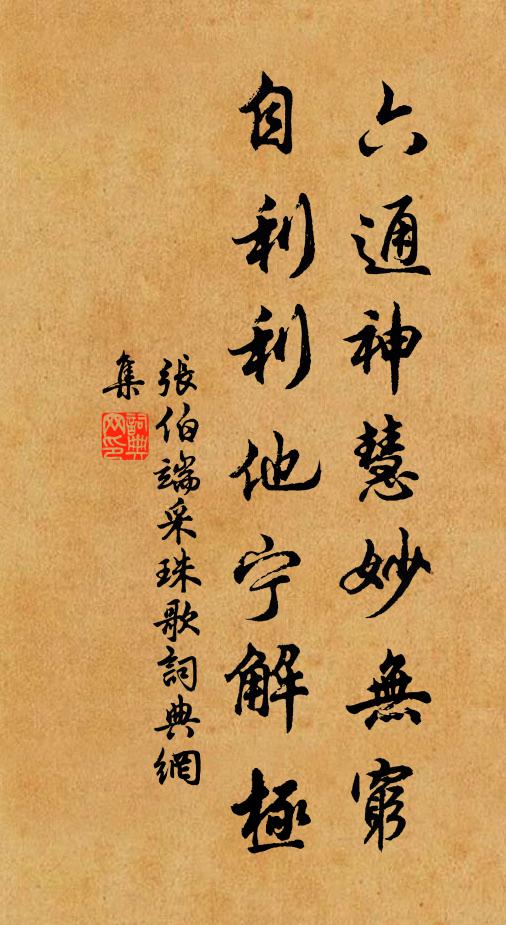 六通神慧妙無窮
自利利他宁解極
張伯端采珠歌詞典網
集
詞典网印